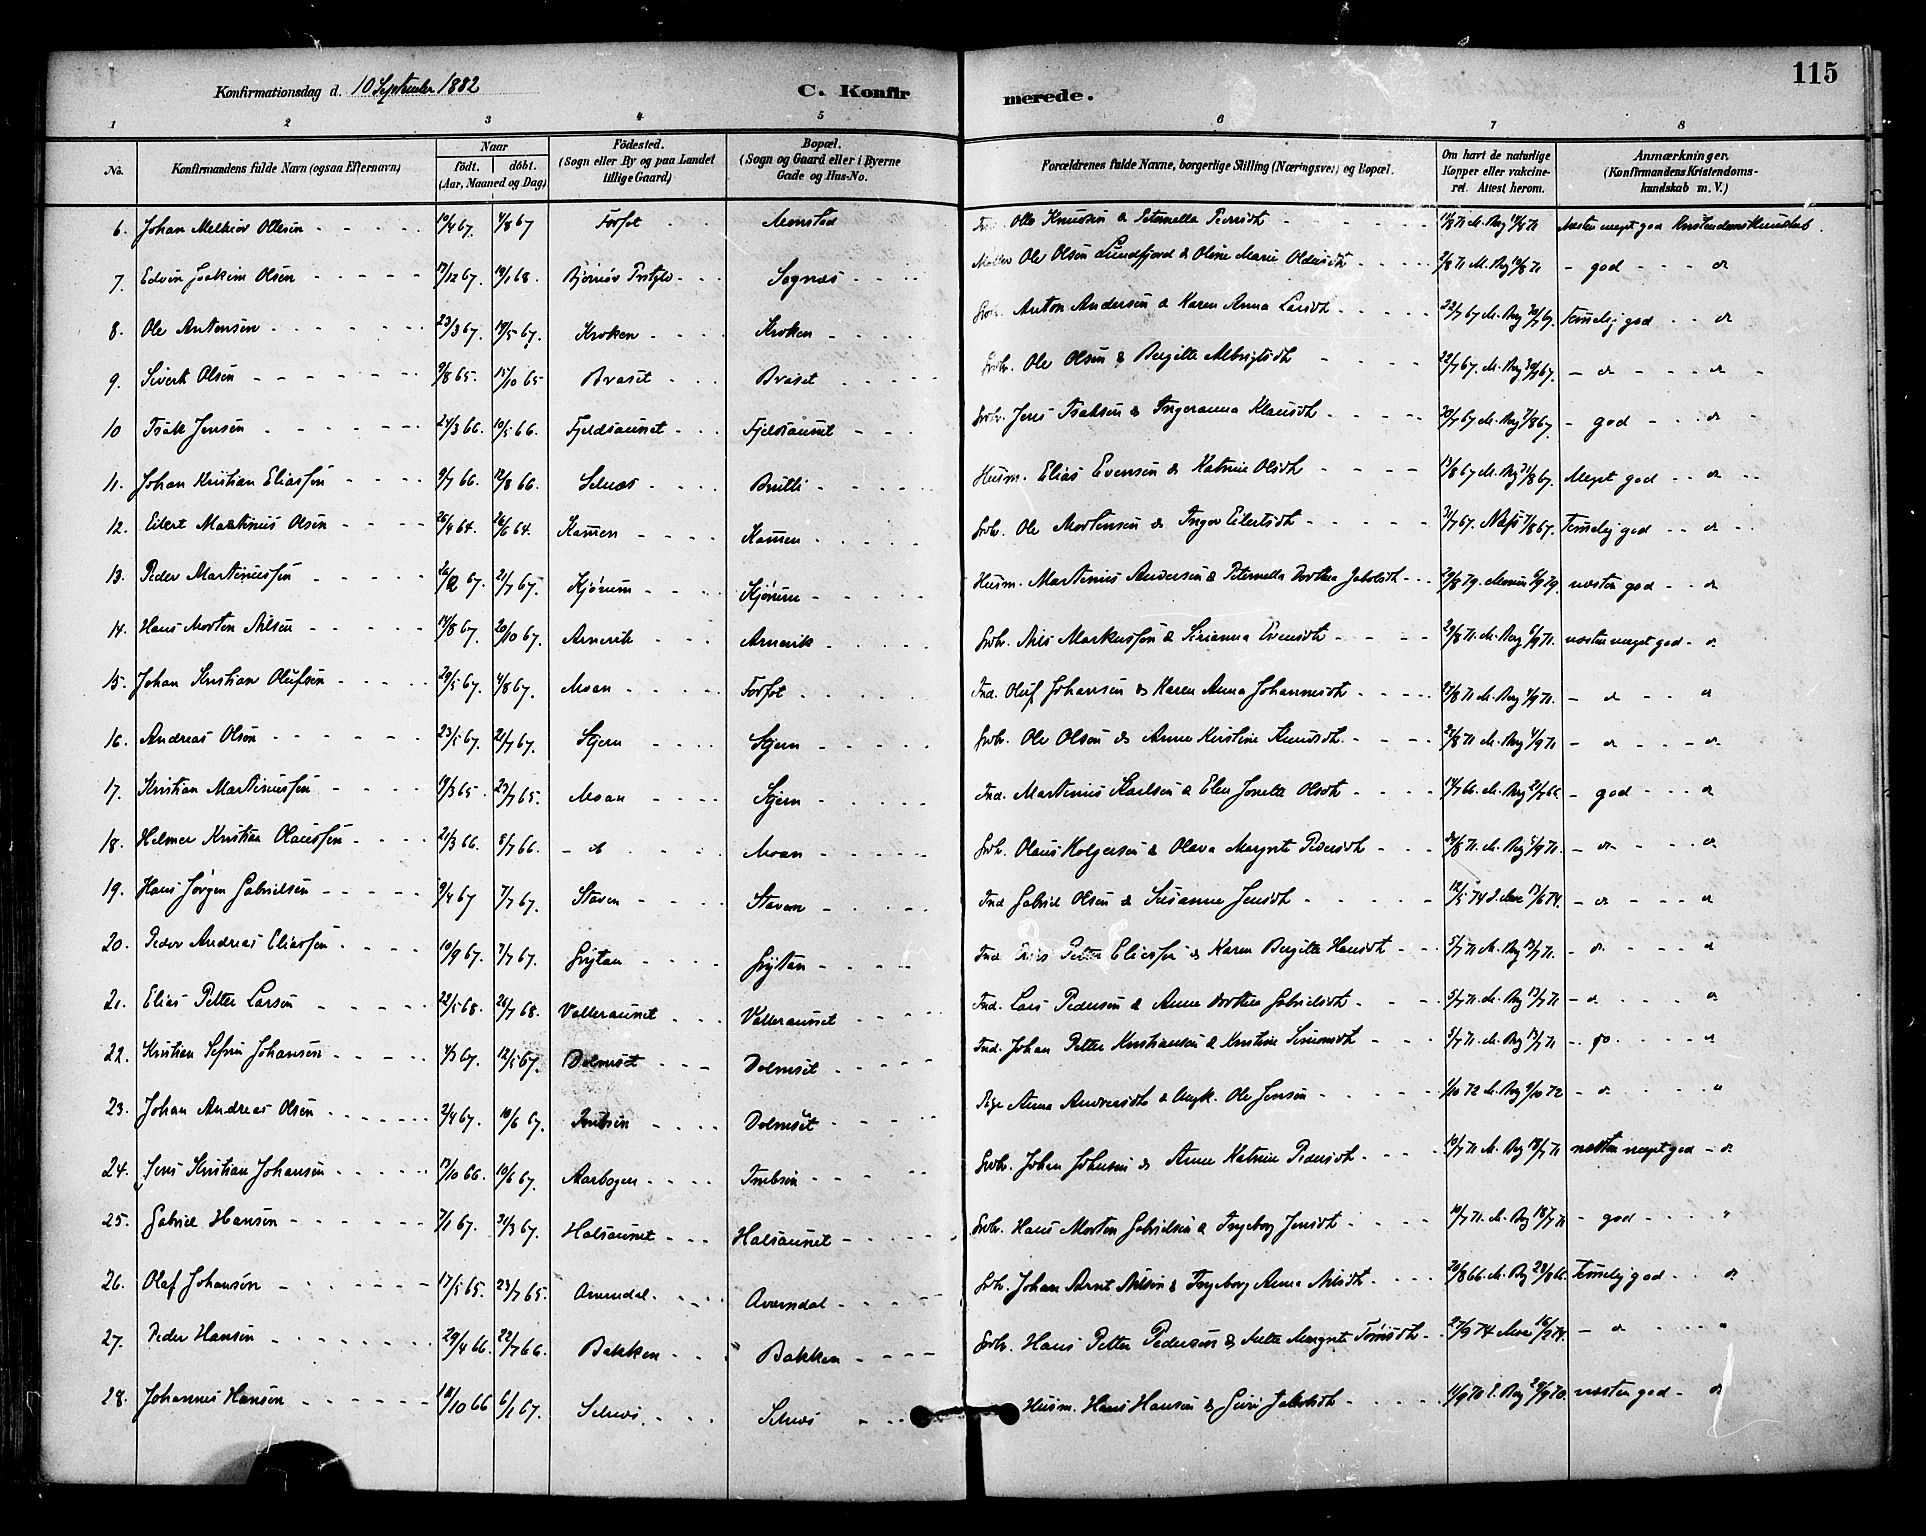 115
Konfirmationsdag d. 10 September 1882 C. Konfirmerede.
1 2 3 4 5 6 7 8
No. Konfirmandens fulde Navn (ogsaa Efternavn) Naar födt. döbt. (Aar, Maaned og Dag) Födested. (Sogn eller By og paa Landet tillige Gaard) Bopæl. (Sogn og Gaard eller i Byerne Gade og Hus-No. Forældrenes fulde Navne, borgerlige Stilling (Næringsvei) og Bopæl. Om havt de naturlige Kopper eller vakcineret. Attest herom. Anmærkninger. (Konfirmandens Kristendomskundskab m. V.)
6. Johan Melkior Ollesen 10/4 67. 4/8 67 Forfot Monstad Ind. Olle Knudsen & Peternella Piersdt 11/8 71 M. Berg 14/8 71 Næsten meget god Kristendomskundskab.
7. Edvin Joakim Olsen 17/12 67. 19/1 68. Bjørnør Prstgld Sagnæs Møller Ole Olsen Lundfjord & Oline Marie Oldusdt 2/8 71 M. Berg - god do
8. Ole Antonsen 23/3 67. 19/5 67. Kroken Kroken Grbr. Anton Andersen & Karen Anna Larsdt 22/7 67 M. Berg 30/7 67. Temelig god do
9. Sivert Olsen 9/8 65. 15/10 65 Braset Braset Grbr. Ole Olsen & Bergitte Albrigtsdt 22/7 67. M. Berg 30/7 67. - do do
10 Isak Jensen 24/3 66. 10/5 66. Fjeldsaunet Fjeldsaunet Grbr. Jens Isaksen & Ingeranna Klausdt 30/7 67 M. Berg 7/8 67. - god do
11. Johan Kristian Eliassen 9/7 66. 12/8 66. Selnæs Brutli Husm. Elias Evensen & Katrine Olsdt 13/8 67 M. Berg 21/8 67. Meget god do
12. Eilert Martinus Olsen 26/4 64. 26/6 64. Hammen Hammen Grbr. Ole Mortensen & Inger Eilertsdt 31/7 67. Næss 7/8 67. Temelig god do
13. Peder Martinussen 26/2 67. 21/7 67. Kjørum Kjørum Husm. Martinus Andersen & Peternella Dorthea Jakobsdt 29/8 79. 6/9 79. næsten god do
14. Hans Morten Nilsen 14/8 67. 20/10 67. Arnevik Arnevik Grbr. Nils Markussen & Sirianna Evensdt 29/8 71. M. Berg 6/9 71. næsten meget god do
15. Johan Kristian Olufsen 29/5 67. 4/8 67. Moan Forfot Ind. Oluf Johansen & Karen Anna Johannesdt 27/8 71 M. Berg 4/9 71. - do do
16. Andreas Olsen 23/5 67. 21/7 67. Stjern Stjern Grbr. Ole Olsen & Anne Kirstine Knudsdt 27/8 71 M. Berg 4/9 71 - do do
17. Kristian Martinussen 19/3 65. 23/7 65. Moan Stjern Ind. Martinus Karlsen & Elen Jonetta Olsdt 14/7 66. M. Berg 21/7 66. - god do
18. Helmer Kristian Olaussen 21/3 66. 8/7 66. - do Moan Grbr. Olaus Holgersen & Olava Margrete Pedersdt M. Berg 5/9 71. - do do
19. Hans Jørgen Gabrielsen 9/4 67 7/7 67. Staven Staven Ind. Gabriel Olsen & Susanne Jensdt 12/5 74 17/6 74. - do do
20. Peder Andreas Eliassen 10/9 67. 7/7 67. Grytan Grytan Ind. Petter Eliassen & Karen Bergitte Hansdt 5/7 71 M. Berg 13/7 71. - do do
21. Elias Petter Larsen 22/5 68. 26/7 68. Valleraunet Valleraunet Ind. Lars Pedersen & Anne Dorthea Gabrielsdt 5/7 71 M. Berg 13/7 71 - do do
22. Kristian Sefrin Johansen 4/3 67. 12/5 67. Dolmset Dolmset Ind. Johan Petter Kristiansen & Kristine Simonsdt 5/7 71. M. Berg 13/7 71 do do
23. Johan Andreas Olsen 2/4 67. 10/6 67. Imbsen Dolmset Pige Anna Andreasdt & Ungk. Ole Jensen 1/10 72 M. Berg 9/10 72 - do "
24. Jens Kristian Johansen 17/10 66. 10/6 67. Aarbogen Imbsen Grbr. Johan Johnsen & Anne Katrine Pedersdt 10/7 71 M. Berg 18/7 71 næsten meget god - do
25. Gabriel Hansen 7/1 67. 31/3 67. Halsaunet Halsaunet Grbr. Hans Morten Gabrielsen & Ingeborg Jensdt 10/7 71. M. Berg 18/7 71 - god "
26. Olaf Johansen 17/5 65. 23/7 65. Averndal Averndal Grbr. Johan Arnt Nilsen & Ingeborg Anna Nilsdt 20/8 66. M. Berg 28/8 66. Temelig god do
27. Peder Hansen 29/4 66. 22/7 66. Bakken Bakken Grbr. Hans Petter Pedersen & Mette Margrete Tørrisdt - do "
28. Johannes Hansen 18/10 66 6/1 67. Selnæs Selnæs Husm. Hans Hansen & Guri Jakobsdt næsten god - do